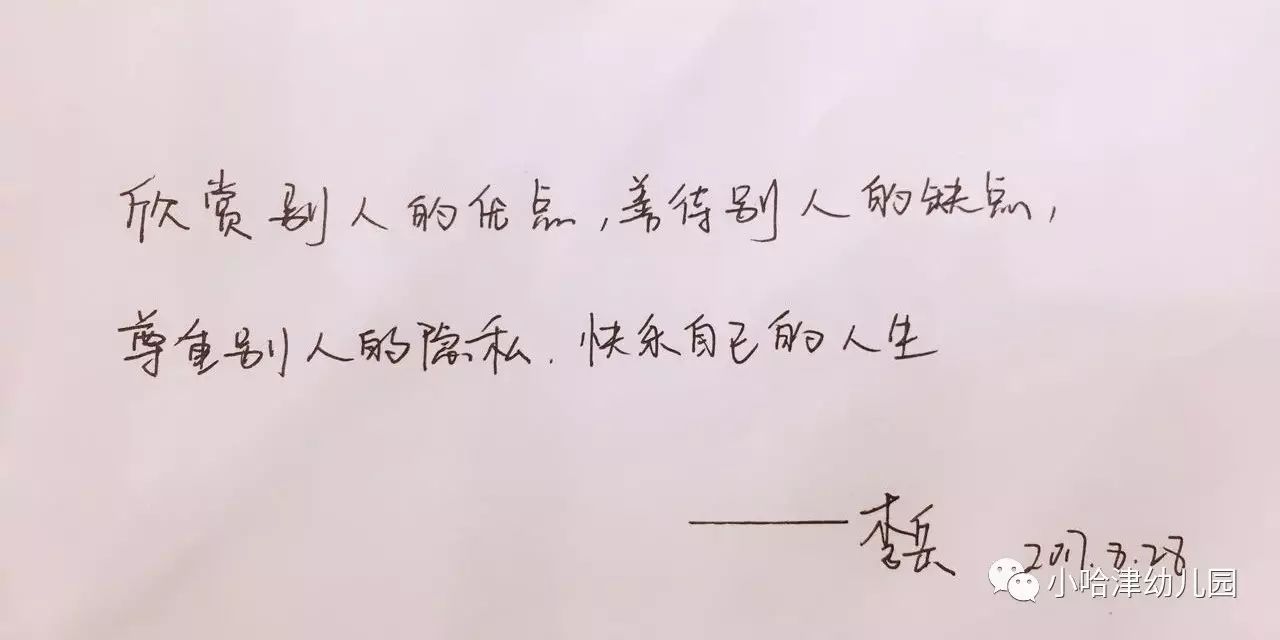 欣赏别人的优点,善待别人的缺点,
尊重别人的隐私.快乐自己的人生
——李岳 2017.8.28
小哈津幼儿园